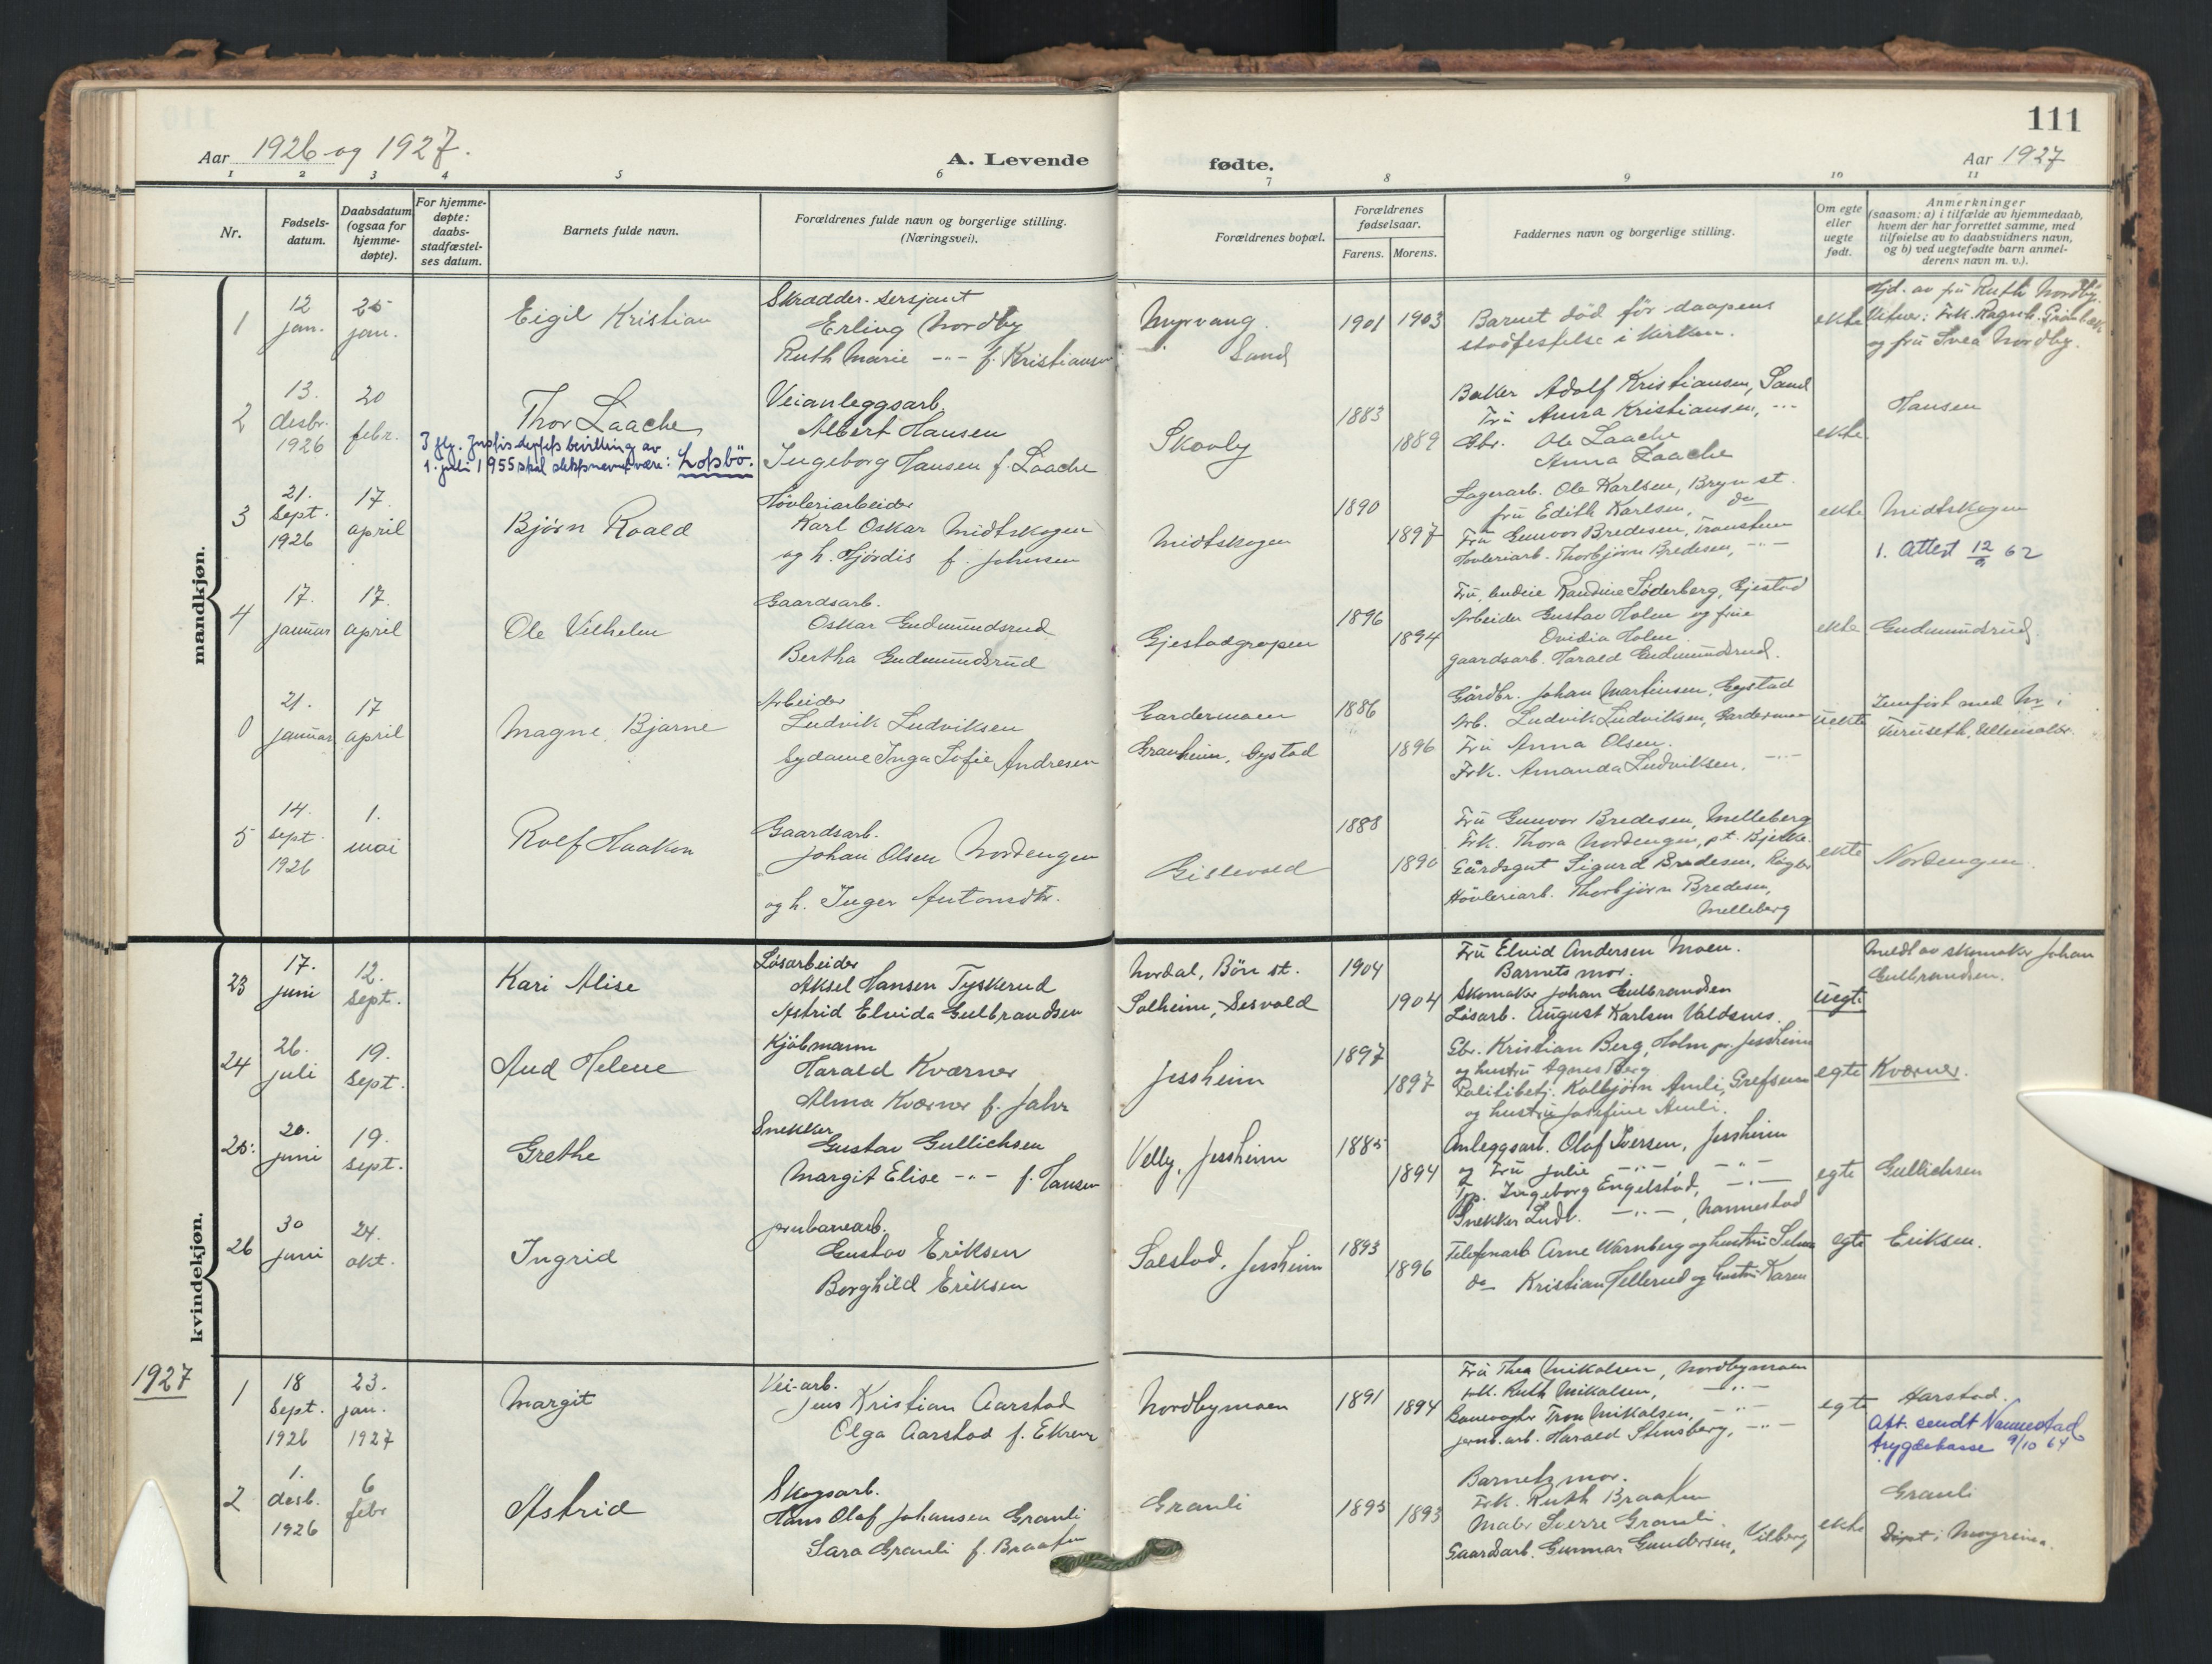 111
Aar 1926 og 1927.
A. Levende
fødte.
Aar 1927
1 2 3 4 5 6 7 8 9 10 11
Nr.
Fødsels-
datum.
Daabsdatum
(ogsaa for
hjemme-
døpte).
For hjemme-
døpte:
daabs-
stadfæstel-
ses datum.
Barnets fulde navn.
Forældrenes fulde navn og borgerlige stilling.
(Næringsvei).
Forældrenes bopæl.
Forældrenes
fødselsaar.
Farens. Morens.
Faddernes navn og borgerlige stilling.
Om egte
eller
uegte
født.
Anmerkninger
(saasom: a) i tilfælde av hjemmedaab,
hvem der har forrettet samme, med
tilføielse av to daabsvidners navn,
og b) ved uegtefødte barn anmel-
derens navn m. v.).
mandkjøn.
1
12
jan.
25
jan.
Eigil Kristian
Skrædder-sersjant
Erling Nordby
Ruth Marie -"- f. Kristiansen
Myrvang
Sand
1901 1903
Barnet død før daapens
stadfestelse i kirken.
ekte
Hjd. av frü Ruth Nordby.
og frü Svea Nordby.
2
13.
desbr.
1926
20
febr.
Thor Laache
3 flg. Justisdeptets bevilling av
1. juli 1955 skal slektsnavnet være: Lotsbö.
Veianleggsarb.
Albert Hansen
Ingeborg Hansen f. Laache
Skovly
1883
1889
Baker Adolf Kristiansen, Sand
Frü Anna Kristiansen, -"-
Gbr. Ole Laache
Anna Laache
ekte
Hansen
3
21.
Sept.
1926
17
april
Bjørn Roald
Høvleriarbeider
Karl Oskar Midtskogen
og h. Hjørdis f. Johnsen
Midtskogen
1890
1897
Lagerarb. Ole Karlsen, Bryn st.
frü Edith Karlsen, do
Frü Gunvor Bredesen,
Høvleriarb. Thorbjørn Bredesen, -"-
ekte
Midtskogen
1. Attest 12/9 62
4
17.
januar
17.
april
Ole Vilhelm
Gaardsarb.
Oskar Gudmundsrud
Bertha Gudmundsrud
Gjestadgropen
1896
1894
Frü Randine Söderberg, Gjestad
Arbeider Gustav Holm og frue
Ovidia Holm.
gaardsarb. Harald Gudmundsrud.
ekte
Gudmundsrud
0
21.
januar
17
april
Magne Bjarne
Arbeider
Ludvik Ludviksen
Sydame Inga Sofie Andresen
Gardermoen
Granheim, Gystad
1886
1896
Gårdbr. Johan Martinsen, Gystad
Arb. Ludvik Ludviksen, Gardermoen
Frü Anna Olsen.
Frk. Amanda Ludviksen, -"-
uekte
Jemført med Nr i
Furuseth, Ullensaker.
5
14.
sept.
1926
1.
mai
Rolf Haakon
Gaardsarb.
Johan Olsen Nordengen
og h. Inger Antonsdtr.
Gislevold
1888
1890
Frü Gunvor Bredesen, Melleberg
Frk. Thora Nordengen, pt. Bjerke.
Gårdsgut Sigurd Bredesen,
Høvleriarb. Thorbjørn Bredesen,
Melleberg
ekte
Nordengen.
kvindekjøn.
23
17.
juni
12.
Sept.
Kari Alise
Løsarbeider
Aksel Hansen Tyskerud
Astrid Elvida Gulbrandsen
Nordal, Bøn st.
Solheim, Sesvold
1904
1904
Frü Elvid Andersen Moen.
Barnets mor.
Skomaker Johan Gulbrandsen
Løsarb. August Karlsen Valdsnes.
uegt.
meldt av skomaker Johan
Gulbrandsen.
24
26.
juli
19.
Sept.
Aud Helene
Kjöbmann
Harald Kværner
Alma Kværner f. Jahr
Jessheim
1897
1897
Gbr. Kristian Berg, Holm pr. Jessheim
og hustru Agnes Berg
Politibetj. Kolbjørn Amli, Grefsrum
og hustru Josefine Amli.
egte
Kværner.
25:
20.
juni
19.
Sept.
Grethe
Snekker
Gustav Gullichsen
Margit Elise -"- f. Hansen
Velly, Jessheim
1885
1894
Anleggsarb. Olaf Iversen, Jessheim
og Frü Julie -"-, -"-
Ingeborg Engelstad, -"-
Snekker Ludv. -"-, Nannestad
egte
Gullichsen
26
30
juni
24.
okt.
Ingrid
Jernbanearb.
Gustav Eriksen
Borghild Eriksen
Solstad, Jessheim
1893
1896
Telefonarb Arne Warnberg og hustru Selma
do Kristian Hellerud og hustru Karen
egte
Eriksen.
1927
1
18
Sept.
1926
23.
jan.
1927
Margit
Vei-arb.
Jens Kristian Aarstad
Olga Aarstad f. Ekrem
Nordbymoen
1891 1894
Frü Thea Mikalsen, Nordbymoen
frk. Ruth Mikalsen, -"-
Banevogter Tron Mikalsen, -"-
jernb.arb. Harald Stensberg, -"-
egte
Aarstad.
Att. sendt Nannestad
trygdekasse 9/10 64
2
1.
desb.
1926
6
febr
Astrid
Skogsarb.
Hans Olaf Johansen Granli
Sara Granli f. Braaten
Granli
1895 1893
Barnets mor.
Frk. Ruth Braaten
Maler Sverre Granli.
Gaardsarb. Gunnar Gundersen, Vilberg
ekte
Granli
Døpt i Mogreina.